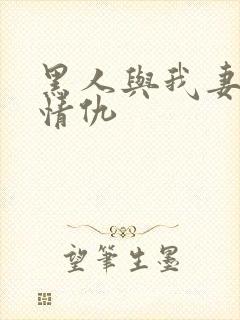 黑人與我妻
情仇
望筆生墨